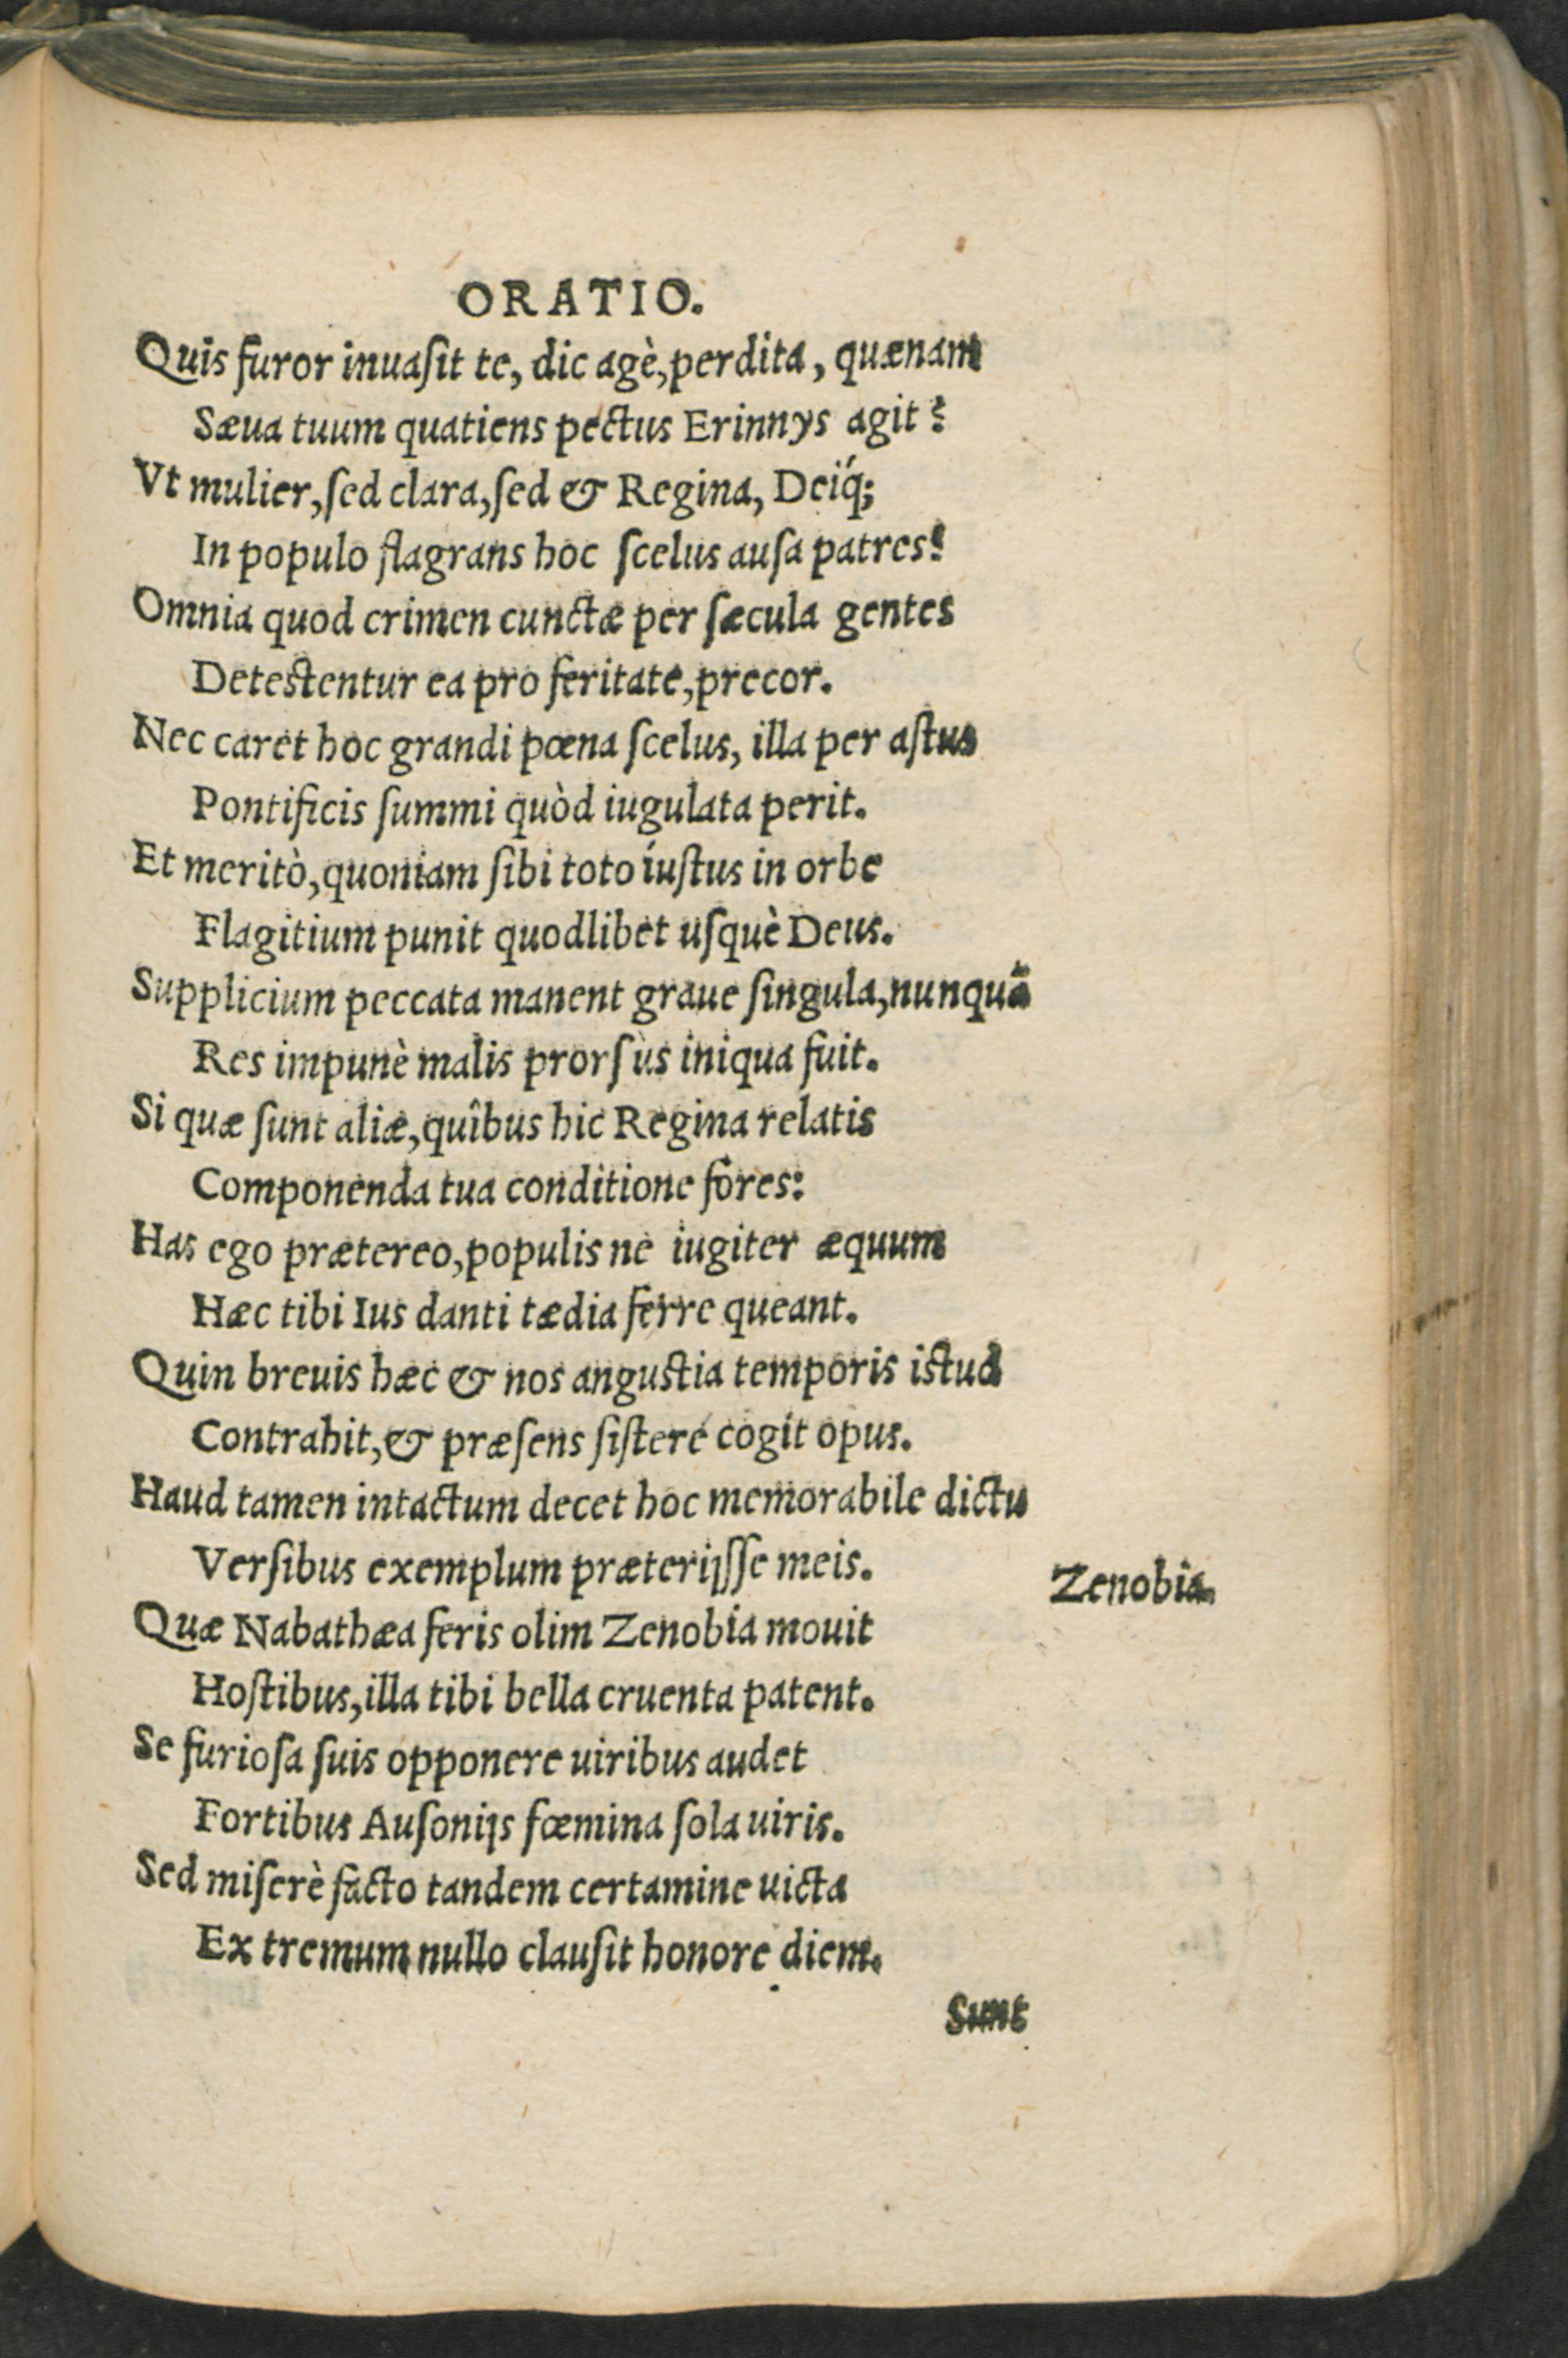 ORATIO.
Quis furor inuaſit te, dic agè, perdita, quænam
Sæua tuum quatiens pectus Erinnys agit?
Vt mulier, ſed clara, ſed & Regina, Deiq́;
In populo flagrans hoc ſcelus auſa patres?
Omnia quod crimen cunctæ per ſæcula gentes
Deteſtentur ea pro feritate, precor.
Nec caret hoc grandi pœna ſcelus, illa per aſtus
Pontificis ſummi quòd iugulata perit.
Et meritò, quoniam ſibi toto iuſtus in orbe
Flagitium punit quodlibet uſquè Deus.
Supplicium peccata manent graue ſingula, nunquã
Res impunè malis prorſùs iniqua fuit.
Si quæ ſunt aliæ, quîbus hic Regina relatis
Componenda tua conditione fores:
Has ego prætereo, populis ne iugiter æquum
Hæc tibi Ius danti tædia ferre queant.
Quin breuis hæc & nos anguſtia temporis iſtud
Contrahit, & præſens ſiſtere cogit opus.
Haud tamen intactum decet hoc memorabile dictu
Verſibus exemplum præterijſſe meis.
Zenobia.
Quæ Nabathæa feris olim Zenobia mouit
Hoſtibus, illa tibi bella cruenta patent.
Se furioſa ſuis opponere uiribus audet
Fortibus Auſonijs fœmina ſola uiris.
Sed miſerè facto tandem certamine uicta
Extremum nullo clauſit honore diem.
Sunt